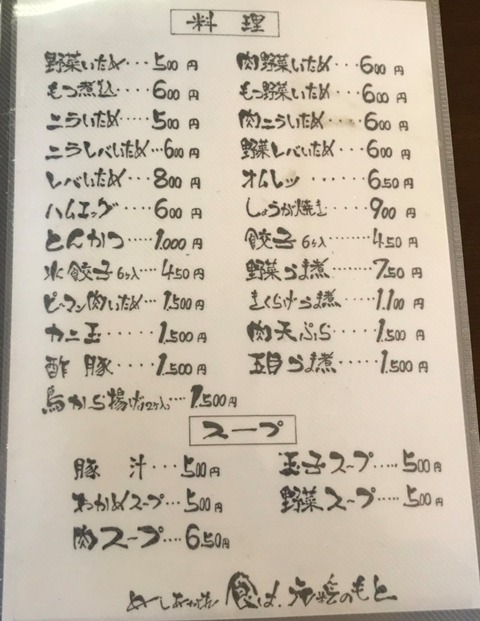 料理
野菜いため・・・500円
もつ煮込・・・・600円
ニラいため・・・・・500円
ニラレバいため・・・600円
レバいため・・・・800円
ハムエッグ・・・・600円
とんかつ・・・・・1.000円
水餃子6ヶ入・・・・450円
ピーマン肉いため・・・1.500円
カニ玉・・・・・1.500円
酢豚・・・・・1.500円
鳥から揚げ12ヶ入・・・・1.500円
肉野菜いため・・・600円
もつ野菜いため・・・600円
肉ニラいため・・・・600円
野菜レバいため・・・600円
オムレツ・・・・・・・650円
しょうが焼き・・・・900円
餃子6ヶ入・・・・・450円
野菜うま煮・・・・・750円
きくらげうま煮・・・・1.100円
肉天ぷら・・・・・1.500円
五目うま煮・・・・・1.500円
スープ
豚汁・・・500円
わかめスープ・・・・500円
肉スープ・・・・650円
玉子スープ・・・・・500円
野菜スープ・・・・・500円
めしあがれ 食は、元気のもと